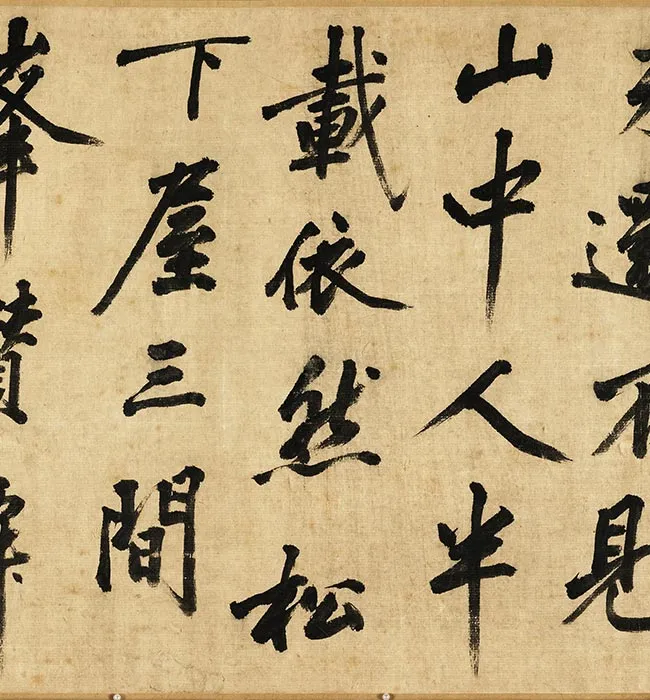 還不見
山中人半
載依然松
下屋三間